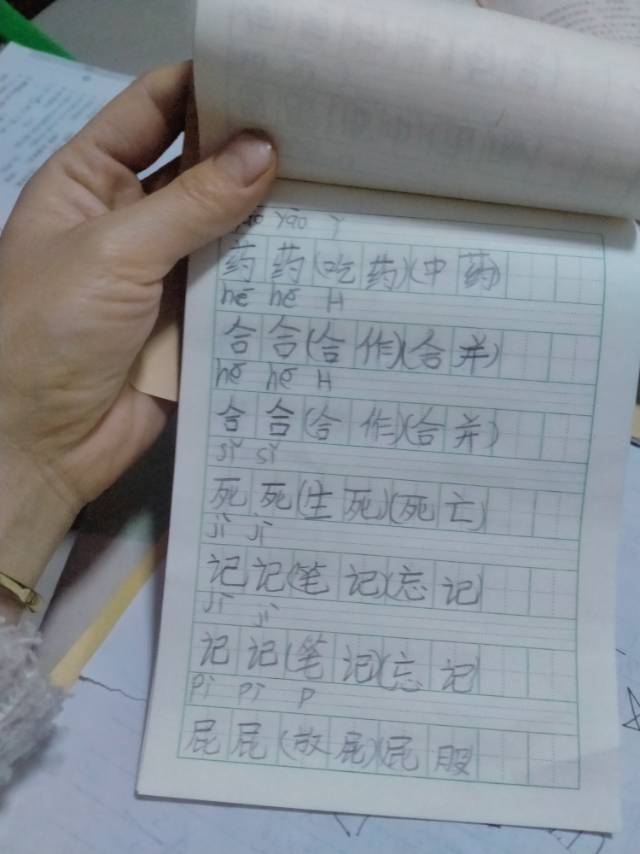 yào Y
药 药 (吃 药)(中 药)
hé hé H
合 合 (合 作)(合 并)
hé hé H
合 合 (合 作)(合 并)
sǐ sǐ
死 死 (生 死)(死 亡)
jì jì
记 记 (笔 记)(忘 记)
jì jì
记 记 (笔 记)(忘 记)
pì pì p
屁 屁 (放 屁)(屁 股